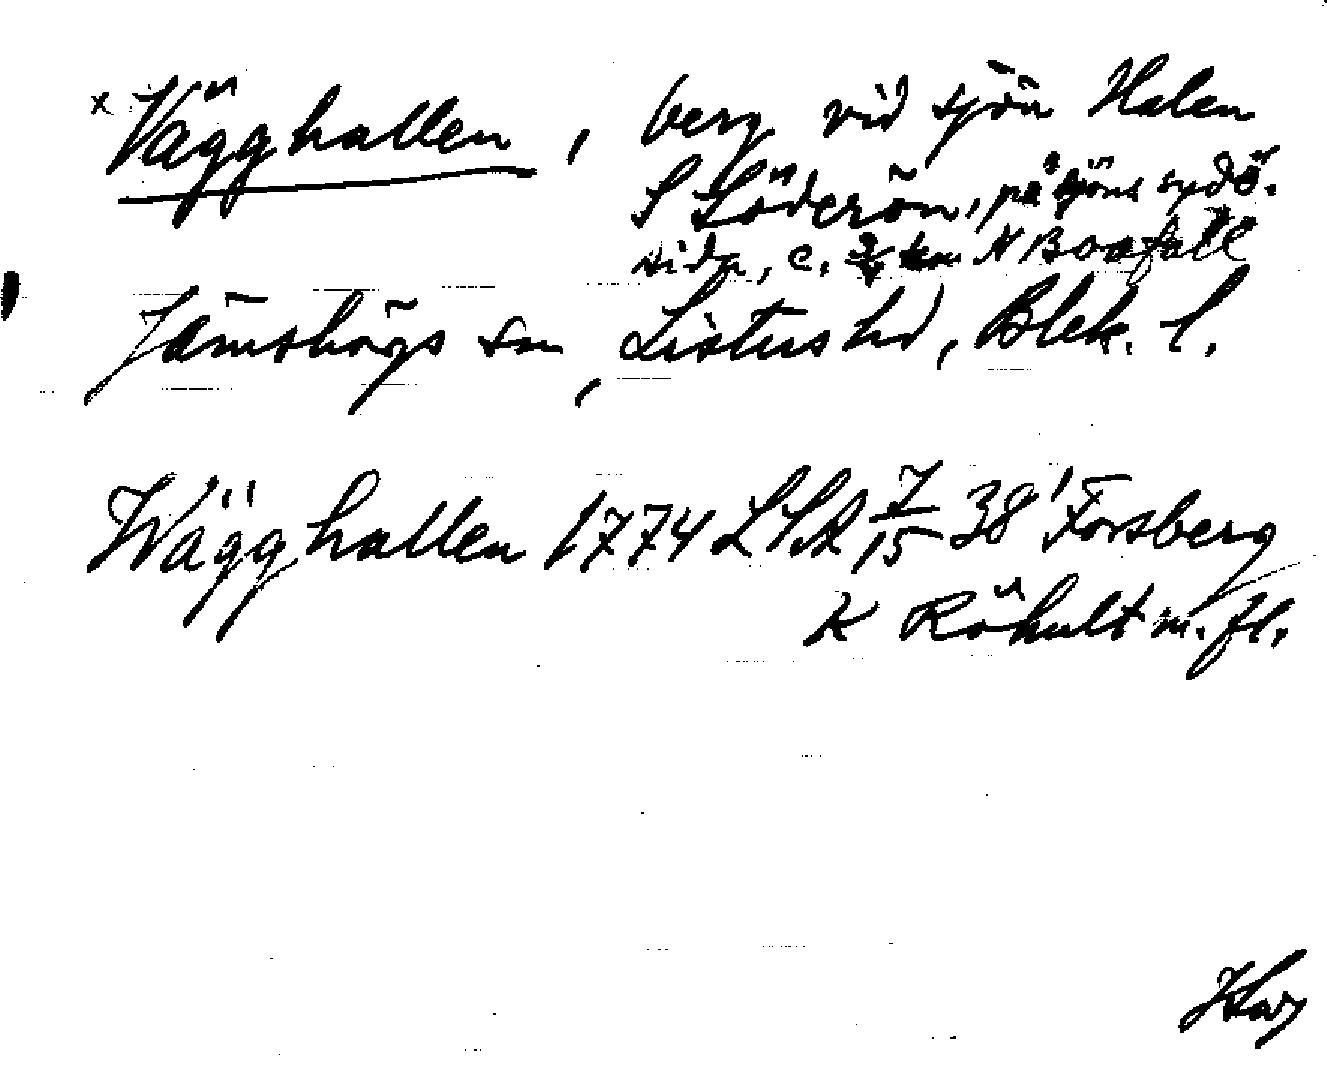 x Vägghallen, berg vid sjön Halen
S Söderön, på sjöns sydö.
sida, c. 3/4 km N Boafall
Jämshögs sn, Listers hd, Blek. l.
Wägghallen 1774 LSA 7/15 38' Forsberg
K Röhult m. fl.